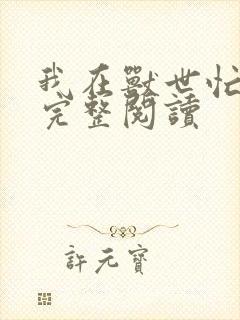 我在獸世忙
完整閱讀
許元寶